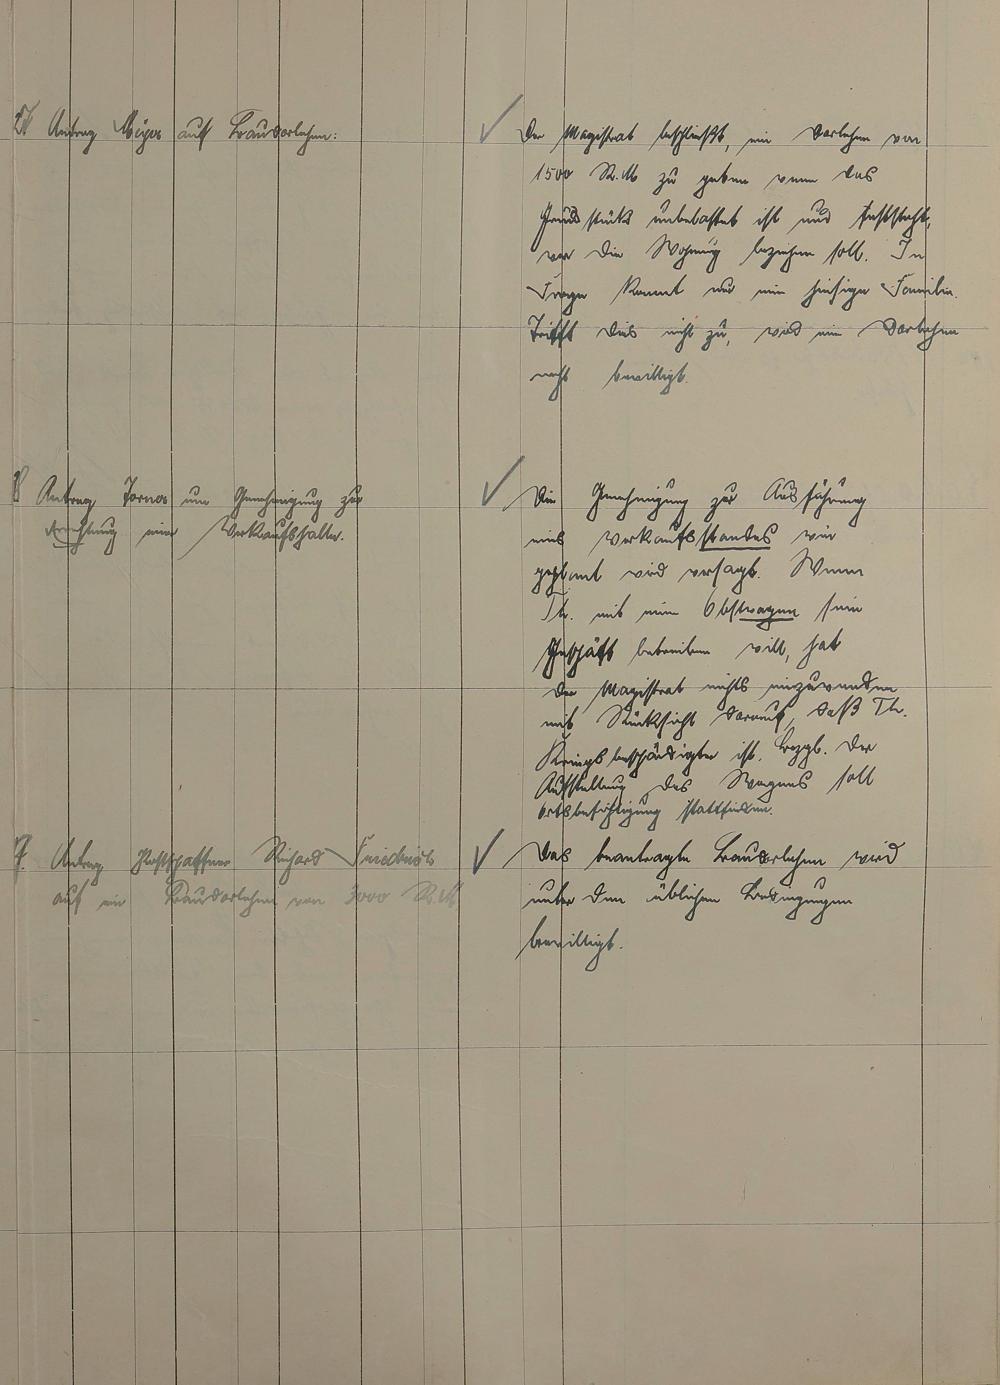 Antrag Meyer auf Baudarlehen:
Der Magistrat beschließt, ein Darlehen von
1500 R.M zu geben wenn das
Grundstück unbelastet ist und feststeht,
wer die Wohnung beziehen soll. In
Frage kommt nur eine hiesige Familie.
Trifft dies nicht zu, wird ein Darlehen
nicht bewilligt.
8 Antrag um Genehmigung zur
Errichtung einer Verkaufshalle.
Die Genehmigung zur Ausführung
eines Verkaufsstandes wie
geplant wird versagt. Wenn
Th. mit einem Obstwagen sein
Geschäft betreiben will, hat
der Magistrat nichts einzuwenden
mit Rücksicht darauf, daß Th.
Kriegsbeschädigter ist. Bezgl. der
Aufstellung des Wagens soll
Ortsbesichtigung stattfinden.
9. Antrag Postschaffner Richard Friedrich
auf ein Baudarlehen von 3000 R.M.
Das beantragte Baudarlehen wird
unter den üblichen Bedingungen
bewilligt.